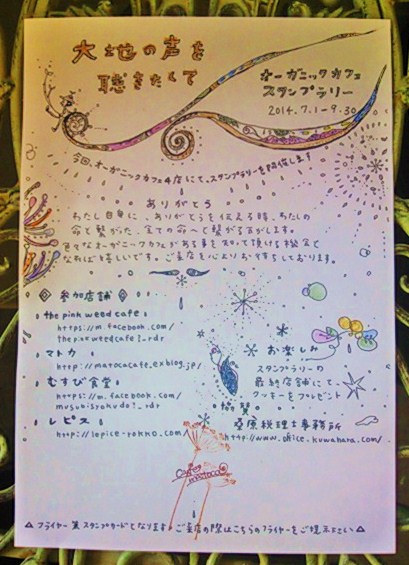 大地の声を
聴きたくて
オーガニックカフェ
スタンプラリー
2014.7.1-9.30
今回、オーガニックカフェ4店にて、スタンプラリーを開催します
ありがとう
わたし自身に、ありがとうを伝える時、わたしの
命と繋がった、全ての命へと繋がる気がします。
色々なオーガニックカフェがある事を知って頂ける機会と
なれば嬉しいです。ご来店を心よりお待ちしております。
参加店舗
the pink weed cafe
https://m.facebook.com/
thepinkweedcafe?_rdr
マトカ
http://matocacafe.exblog.jp/
むすび食堂
https://m.facebook.com/
musubisyokudo?_rdr
レピス
http://lepice-rokko.com/
お楽しみ
スタンプラリーの
最終店舗にて、
クッキーをプレゼント
協賛
桑原税理士事務所
http://www.office-kuwahara.com/
cafe matoca
フライヤー兼スタンプカードとなります。ご来店の際はこちらのフライヤーをご提示下さい